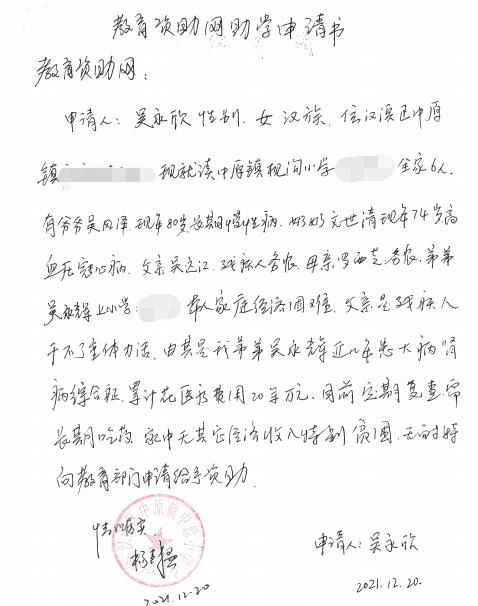 教育资助网助学申请书
教育资助网:
申请人:吴永欣 性别,女 汉族,住汉滨区中原
镇 现就读中原镇 小学 全家6人,
有爷爷吴 泽,现年80岁长期慢性病,奶奶文世清现年74岁高
血压冠心病,父亲吴 江,残疾人务农,母亲罗西芝务农,弟弟
吴永辉上小学: 本人家庭经济困难,父亲是残疾人
干不了重体力活,由其是我弟弟吴永辉近几年患大病肾
病综合征,累计花医疗费用20多万元,目前定期复查,需
长期吃药 家中无其它经济收入特别贫困,无耐特
向教育部门申请给予资助.
情况属实
2021.12.20
申请人:吴永欣
2021.12.20.